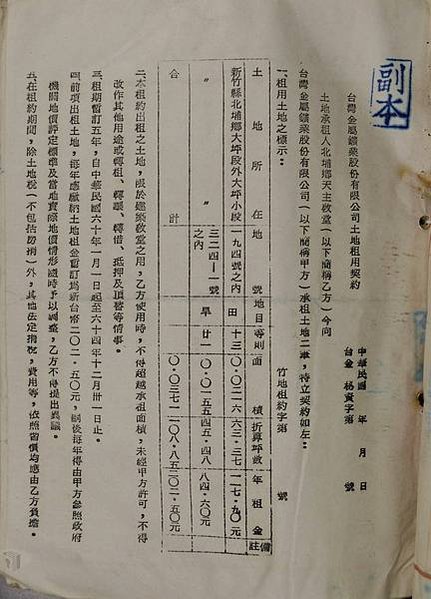 副本
中華民國　年　月　日
台金　秘資字第　號
台灣金屬鑛業股份有限公司土地租用契約
竹地租約字第　號
土地承租人北埔鄉天主教堂(以下簡稱乙方)今向
台灣金屬鑛業股份有限公司(以下簡稱甲方)承租土地二筆,特立契約如左:
一、租用土地之標示:
土地所在 地號 地目 等則 面積 折算坪數 年租金 備註
新竹縣北埔鄉大坪段外大坪小段 一九四號之內 田 十三 〇.〇二一六 六三.三七 一一七.九〇元
〃 〃 三二四—一號之內 旱 廿一 〇.〇一五五 四五.四八 八四.六〇元
合計 〇.〇三七一 一〇八.八五 二〇二.五〇元
二、本租約出租之土地,限於建築教堂之用,乙方使用時,不得超越承租面積,未經甲方許可,不得
改作其他用途或轉租、轉讓、轉借、抵押及頂替等情事。
三、租期暫訂五年,自中華民國六十年一月一日起至六十四年十二月卅一日止。
四、前項出租土地,每年應繳納土地租金暫訂為新台幣二〇二.五〇元,嗣後每年得由甲方參照政府
機關地價評定標準及當地實際地價情形隨時予以調整,乙方不得提出異議。
五、在租約期間,除土地稅(不包括房捐)外,其他法定捐稅,費用等,依照習慣均應由乙方負擔。